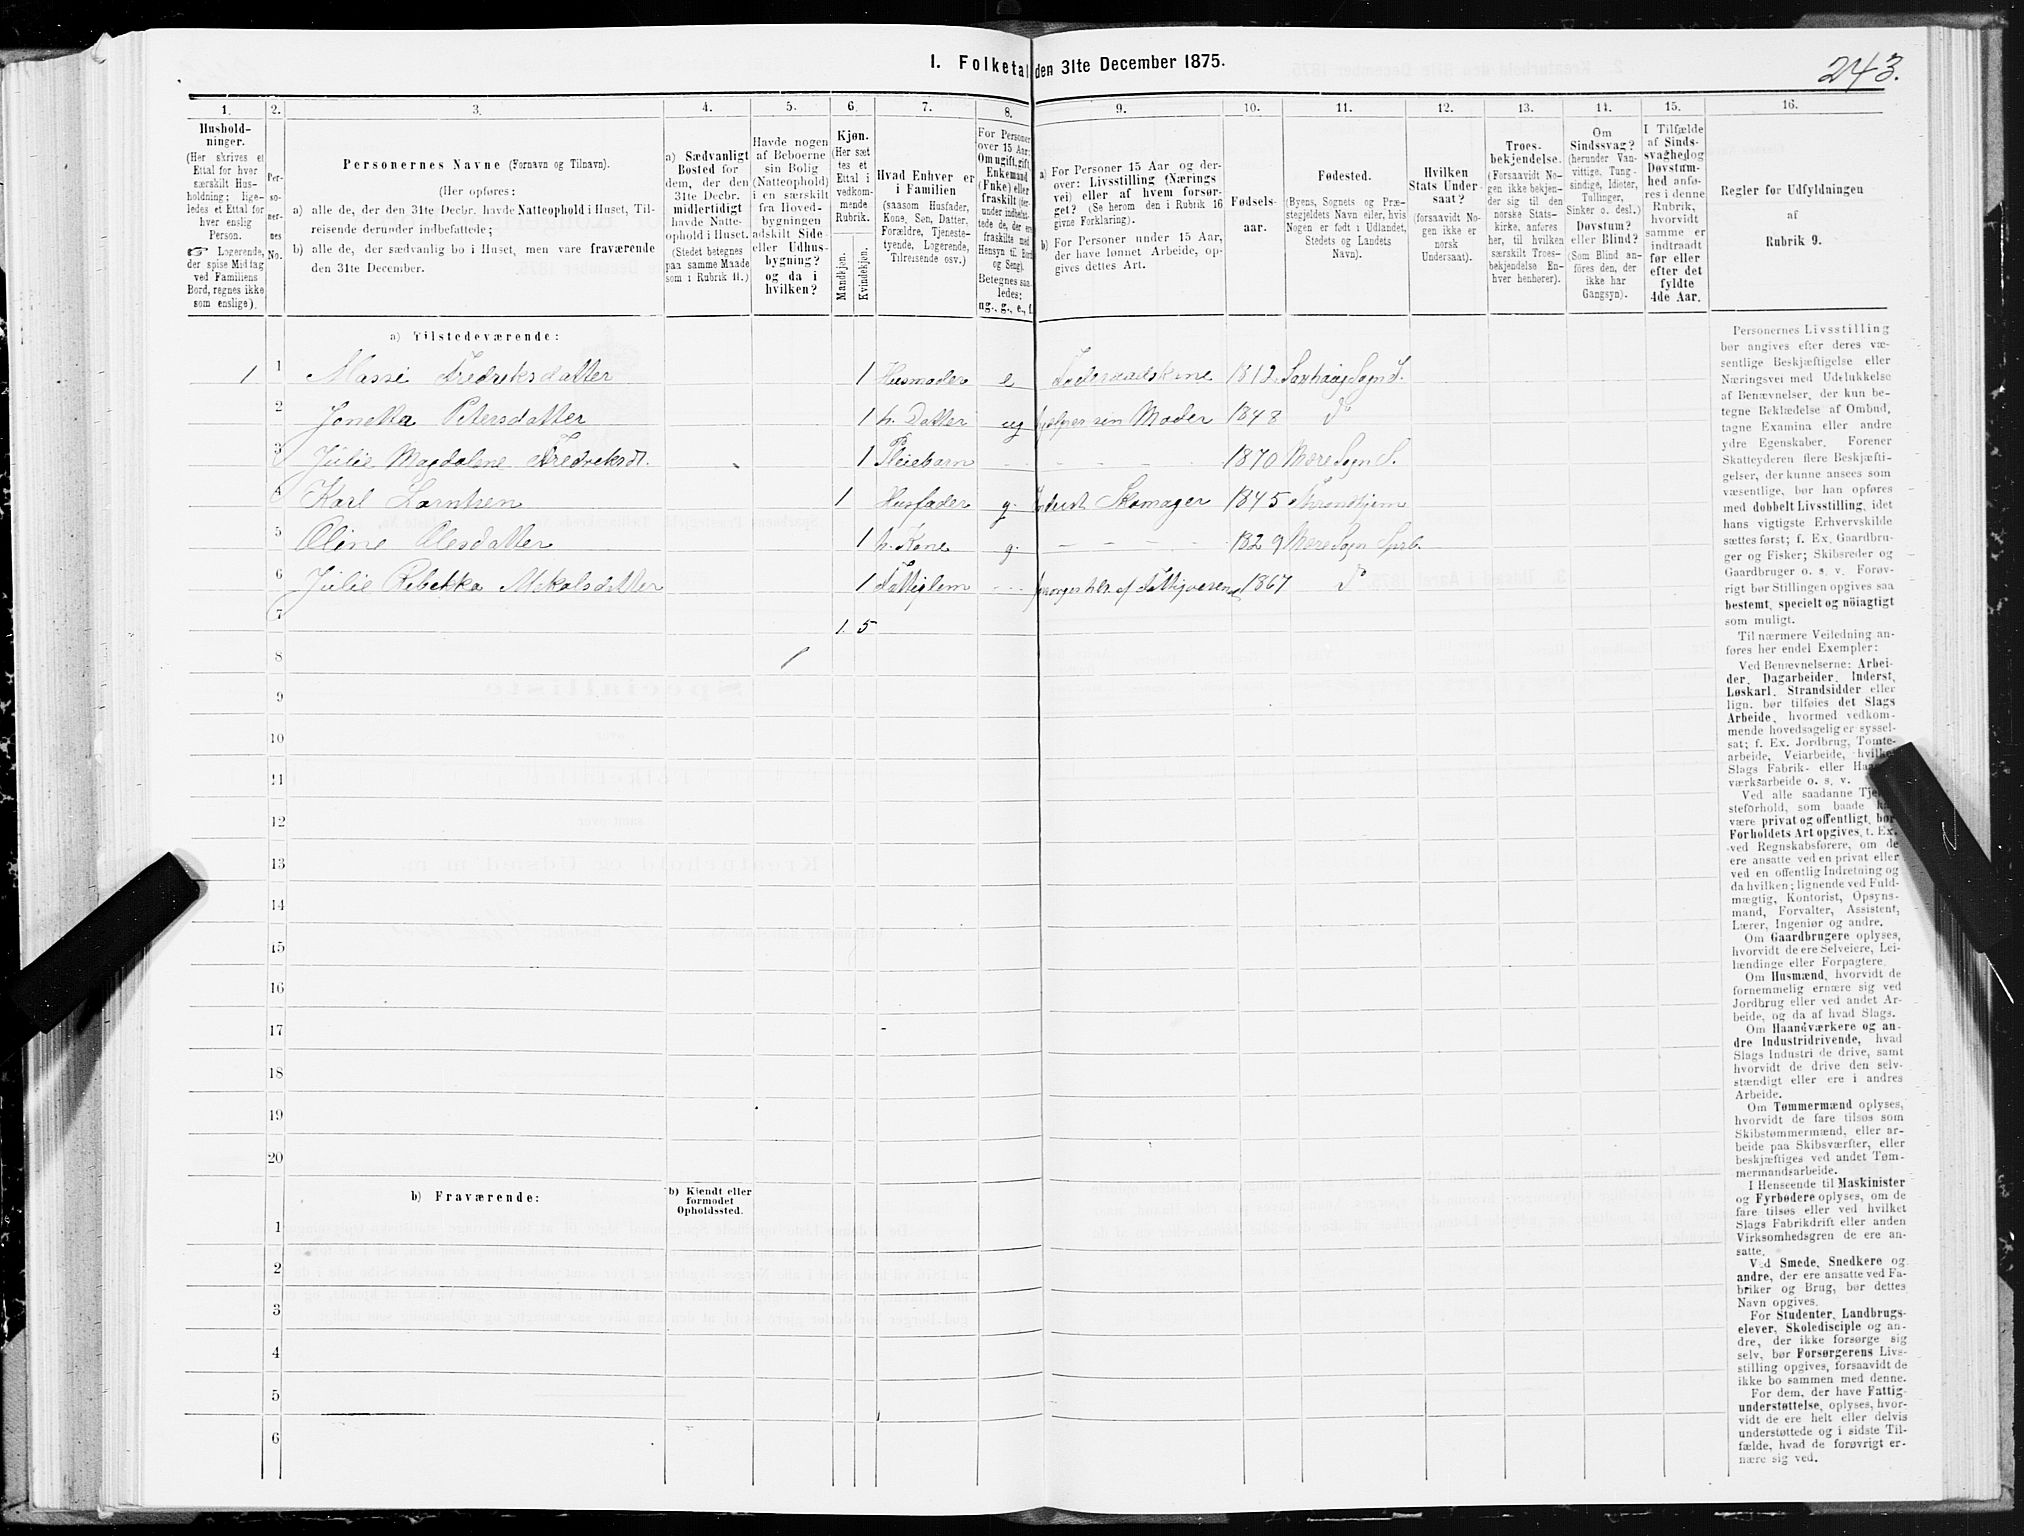 I. Folketal den 31te December 1875.
243.
1. 2. 3. 4. 5. 6. 7. 8. 9. 10. 11. 12. 13. 14. 15. 16.
Hushold-
ninger.
(Her skrives et
Ettal for hver
særskilt Hus-
holdning; lige-
ledes et Ettal for
hver enslig
Person.
☞ Logerende,
der spise Middag
ved Familiens
Bord, regnes ikke
som enslige).
Per-
so-
ner-
nes
No.
Personernes Navne (Fornavn og Tilnavn).
(Her opføres:
a) alle de, der den 31te Decbr. havde Natteophold i Huset, Til-
reisende derunder indbefattede;
b) alle de, der sædvanlig bo i Huset, men vare fraværende
den 31te December.
a) Sædvanligt
Bosted for
dem, der den
31te Decbr.
midlertidigt
havde Natte-
ophold i Huset.
(Stedet betegnes
paa samme Maade
som i Rubrik 11.)
Havde nogen
af Beboerne
sin Bolig
(Natteophold)
i en særskilt
fra Hoved-
bygningen
adskilt Side
eller Udhus-
bygning?
og da i
hvilken?
Kjøn.
(Her sæt
tes et
Ettal i
vedkom-
mende
Rubrik.
Mandkjøn.
Kvindekjøn.
Hvad Enhver er
i Familien
(saasom Husfader,
Kone, Søn, Datter,
Forældre, Tjeneste-
tyende, Logerende,
Tilreisende osv.)
For Personer
over 15 Aar:
Om ugift, gift,
Enkemand
(Enke) eller
fraskilt (der-
under indbefat-
tede de, der ere
fraskilte med
Hensyn til Bord
og Seng).
Betegnes saa-
ledes:
ug., g., e., f.
a) For Personer 15 Aar og der-
over: Livsstilling (Nærings
vei) eller af hvem forsør-
get? (Se herom den i Rubrik 16
givne Forklaring).
b) For Personer under 15 Aar,
der have lønnet Arbeide, op-
gives dettes Art.
Fødsels-
aar.
Fødested.
(Byens, Sognets og Præ-
stegjeldets Navn eller, hvis
Nogen er født i Udlandet,
Stedets og Landets
Navn).
Hvilken
Stats Under-
saat?
(forsaavidt No-
gen ikke er
norsk
Undersaat).
Troes-
bekjendelse.
(Forsaavidt No-
gen ikke bekjen-
der sig til den
norske Stats-
kirke, anføres
her, til hvilken
særskilt Troes-
bekjendelse En-
hver henhører).
Om
Sindssvag?
(herunder Van-
vittige, Tung-
sindige, Idioter,
Tullinger,
Sinker o. desl.)
Døvstum?
eller Blind?
(Som Blind an-
føres den, der
ikke har
Gangsyn).
I Tilfælde
af Sinds-
svaghed og
Døvstum-
hed anfø-
res i denne
Rubrik,
hvorvidt
samme er
indtraadt
før eller
efter det
fyldte
4de Aar.
Regler for Udfyldningen
af
Rubrik 9.
a) Tilstedeværende:
1 1 Massi Fredriksdatter 1 Husmoder e Føderaadskone 1812 Saxhaug Sogn I.
2 Jonetta Petersdatter 1 h. Datter ug hjelper sin Moder 1848 do
3 Julie Magdalene Fredriksdt. 1 Pleiebarn 1870 Mære Sogn S.
4 Karl Larntsen 1 Husfader g. Inderst Skomager 1845 Throndhjem
5 Oline Olesdatter 1 h. Kone g. 1829 Mære Sogn Sprb.
6 Julie Rebekka Mikalsdatter 1 Fattiglem forsørges hlt. af Fattigvesenet 1867 do
7 1. 5
8
9
10
11
12
13
14
15
16
17
18
19
20
b) Fraværende:
b) Kjendt eller
formodet
Opholdssted.
1
2
3
4
5
6
Personernes Livsstilling
bør angives efter deres væ-
sentlige Beskjæftigelse eller
Næringsvei med Udelukkelse
af Benævnelser, der kun be-
tegne Beklædelse af Ombud,
tagne Examina eller andre
ydre Egenskaber. Forener
Skatteyderen flere Beskjæfti-
gelser, der kunne ansees som
væsentlige, bør han opføres
med dobbelt Livsstilling, idet
hans vigtigste Erhvervskilde
sættes først; f. Ex. Gaardbru-
ger og Fisker; Skibsreder og
Gaardbruger o. s. v. Forøv-
rigt bør Stillingen opgives saa
bestemt, specielt og nöiagtigt
som muligt.
Til nærmere Veiledning an-
føres her endel Exempler:
Ved Benævnelserne: Arbei-
der, Dagarbeider, Inderst,
Løskarl, Strandsidder eller
lign. bør tilføies det Slags
Arbeide, hvormed vedkom-
mende hovedsagelig er syssel-
sat; f. Ex. Jordbrug, Tomte-
arbeide, Veiarbeide, hvilket
Slags Fabrik- eller Haand-
værksarbeide o. s. v.
Ved alle saadanne Tjene-
steforhold, som baade kan
være privat og offentligt, bør
Forholdets Art opgives, t. Ex.
ved Regnskabsførere, om de
ere ansatte ved en privat eller
ved en offentlig Indretning og
da hvilken; lignende ved Fuld-
mægtig, Kontorist, Opsyns-
mand, Forvalter, Assistent,
Lærer, Ingeniør og andre.
Om Gaardbrugere oplyses,
hvorvidt de ere Selveiere, Lei-
lændinge eller Forpagtere.
Om Husmænd, hvorvidt de
fornemmelig ernære sig ved
Jordbrug eller ved andet Ar-
beide, og da af hvad Slags.
Om Haandværkere og an-
dre Industridrivende, hvad
Slags Industri de drive, samt
hvorvidt de drive den selv-
stændigt eller ere i andres
Arbeide.
Om Tømmermænd oplyses,
hvorvidt de fare tilsøs som
Skibstømmermænd, eller ar-
beide paa Skibsværfter, eller
beskjæftiges ved andet Tøm-
mermandsarbeide.
I Henseende til Maskinister
og Fyrbødere oplyses, om de
fare tilsøs eller ved hvilket
Slags Fabrikdrift eller anden
Virksomhedsgren de ere an-
satte.
Ved Smede, Snedkere og
andre, der ere ansatte ved Fa-
briker og Brug, bør dettes
Navn opgives.
For Studenter, Landbrugs-
elever, Skoledisciple og an-
dre, der ikke forsørge sig
selv, bør Forsørgerens Livs-
stilling opgives, forsaavidt de
ikke bo sammen med denne.
For dem, der have Fattig-
understøttelse, oplyses, hvor-
vidt de ere helt eller delvis
understøttede og i sidste Til-
fælde, hvad de forøvrigt er-
nære sig ved.